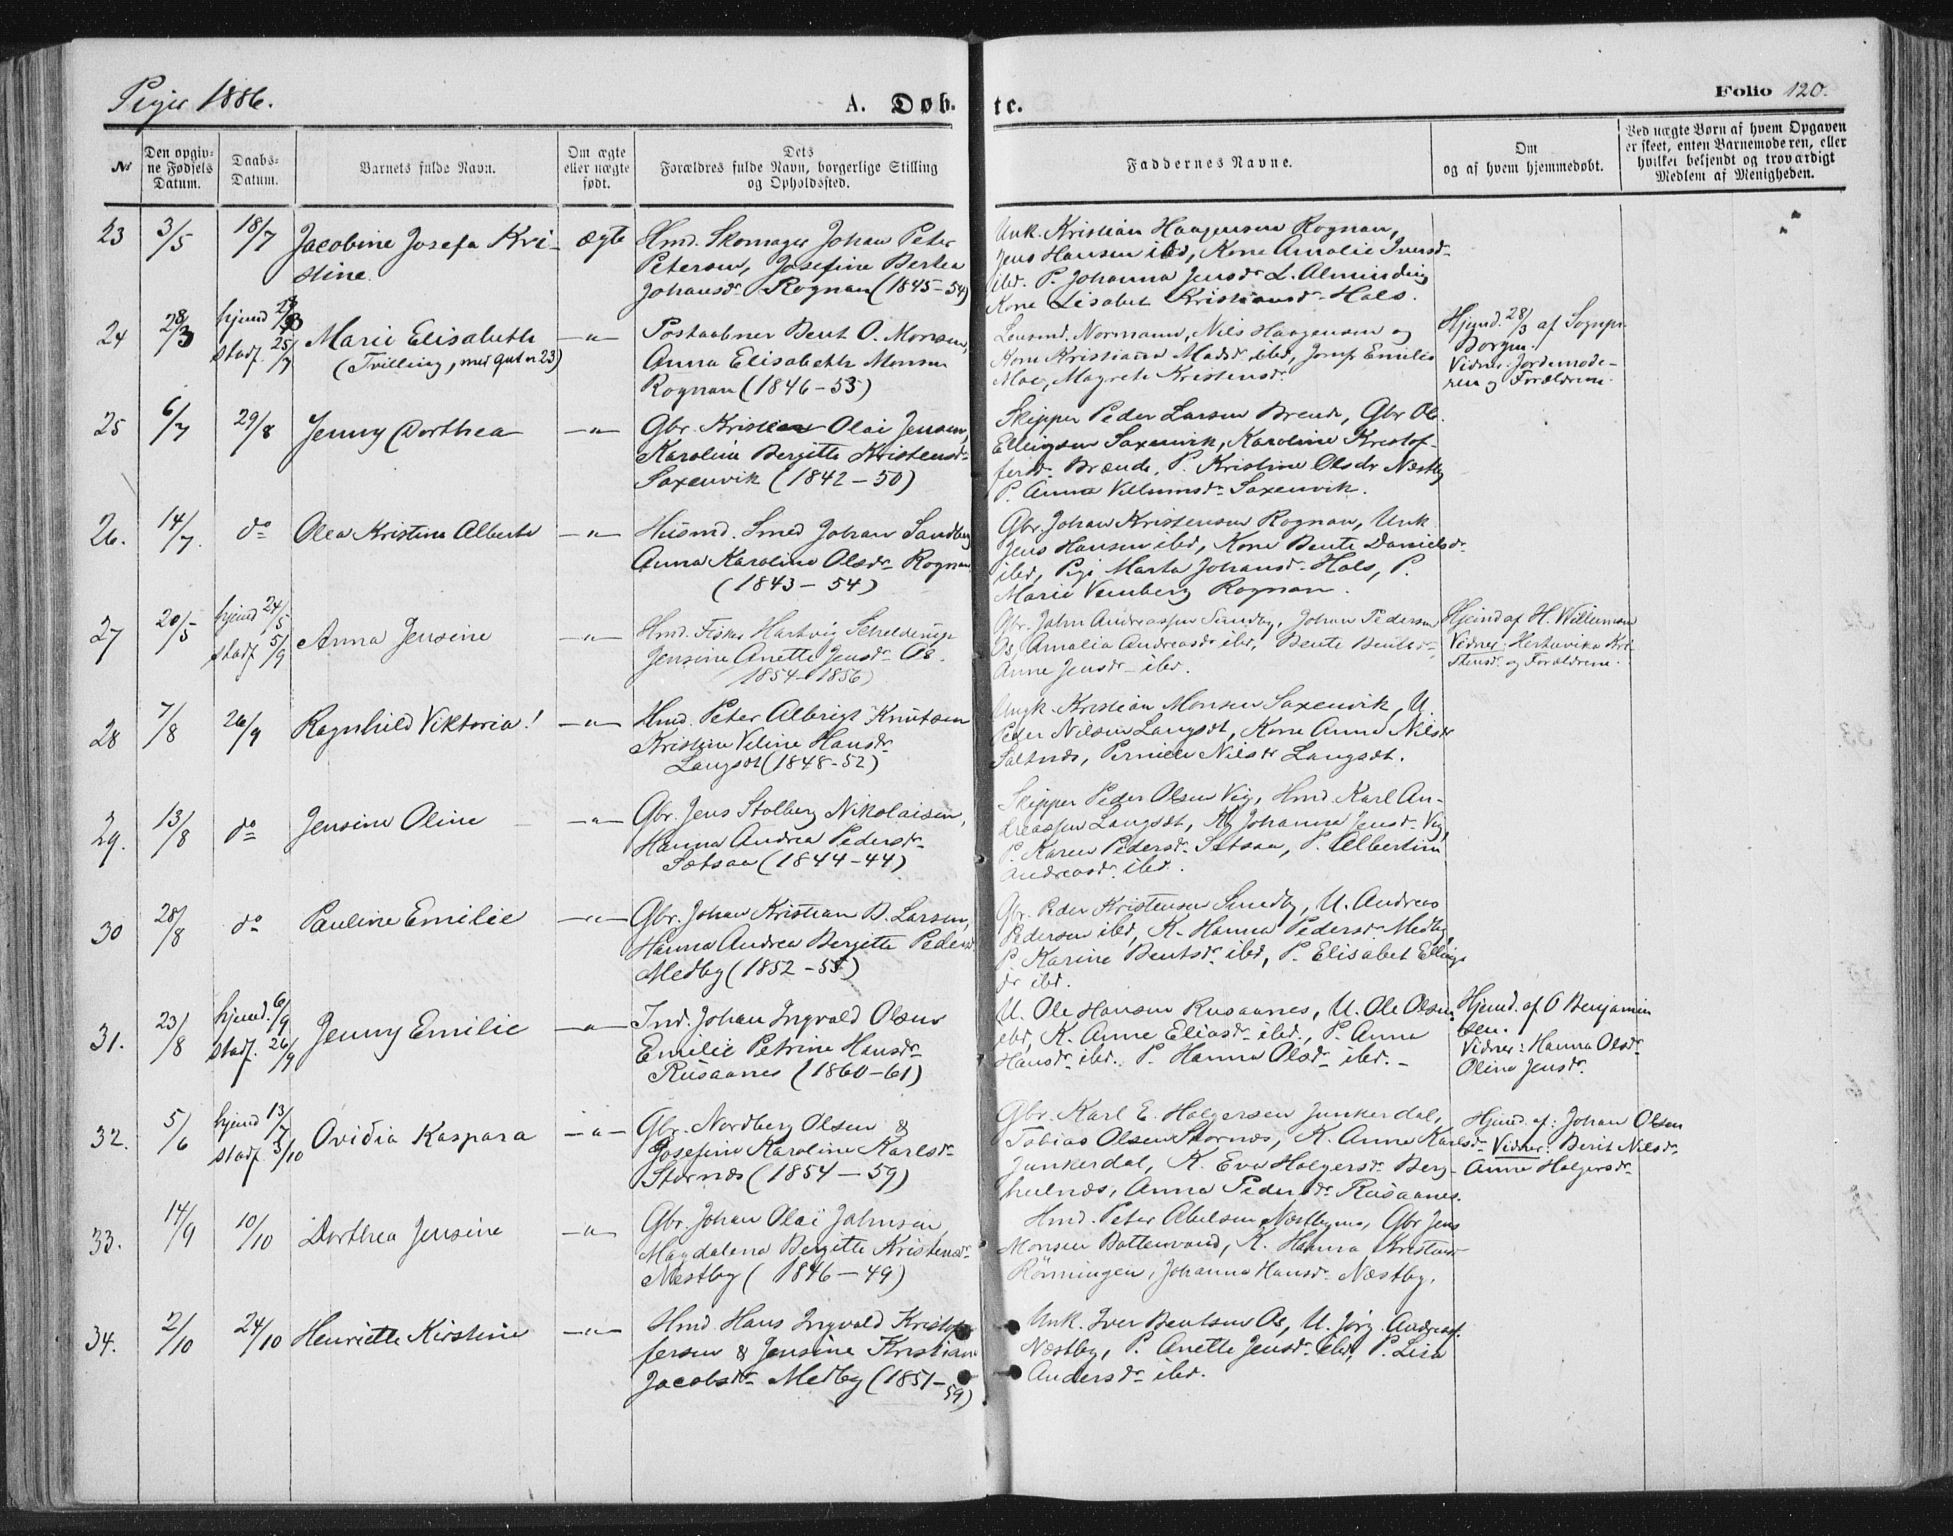 Piger 1886.
A. Døb-
te.
Folio 120.
Nr
Den opgiv-
ne Fødsels
Datum.
Daabs-
Datum.
Barnets fulde Navn.
Om ægte
eller uægte
født.
Dets
Forældres fulde Navn, borgerlige Stilling
og Opholdssted.
Faddernes Navne.
Om
og af hvem hjemmedøbt.
Ved uægte Børn af hvem Opgaven
er skeet, enten Barnemoderen, eller
hvilket bekjendt og troværdigt
Medlem af Menigheden.
23 3/5 18/7 Jacobine Josefa Kri-
stine.
ægte
Hmd. Skomager Johan Peter
Petersen, Josefine Bertea
Johansdr Rognan (1845-54)
Unk. Kristian Haagensen Rognan,
Jens Hansen ibd, Kone Amalie Iversdr
ibd. P. Johanna Jensdr L. Alminding
Kone Lisabet Kristiansdr Hals.
24 28/3 hjemd 28/3
stadf. 25/7
Marie Elisabeth
(Tvilling, med gut n 23)
-"-
Postaabner Bent O. Monsen,
Anna Elisabeth Monsen
Rognan (1846-53)
Lensmd. Normann, Nils Haagensen og
Kone Kristianna Madsdr ibd, Jomf Emilie
Moe, Magrete Kristensdr
Hjemd. 28/3 af Sognepr.
Borgen.
Vidner: Jordemode-
ren og Forældrene.
25 6/7 29/8 Jenny Dorthea -"-
Gbr. Kristian Olai Jensen,
Karoline Bergitte Kristensdr
Saxenvik (1842-50)
Skipper Peder Larsen Brende, Gbr Ol.
Ellingsen Saxenvik, Karoline Kristof-
fersdr Brænde, P. Kristine Olsdr Næstby
P. Anna Villumsdr Saxenvik.
26. 14/7. do Olea Kristine Alberte -"-
Husmd. Smed Johan Sandberg
Anna Karoline Olsdr Rognan
(1843-54)
Gbr. Johan Kristensen Rognan, Unk.
Jens Hansen ibd, Kone Bente Danielsdr
ibd, Pige Marta Johansdr Hals, P.
Marie Vemberg Rognan.
27 20/5 hjemd 24/5
stadf 5/9
Anna Jensine -"-
Hmd. Fisker Hartvig Schelderup
Jensine Anette Jensdr Os.
1854-1856)
Gbr. John Andreassen Sundby, Johan Pedersen
Os, Amalia Andreasdr ibd, Bente Bentsdr
Anne Jensdr ibd.
Hjemd af H. Willumsen
Vidner: Hertuvika Kri-
stensdr og Forældrene.
28 7/8 26/9 Ragnhild Viktoria! -"-
Hmd. Peter Albrigt Knutsen
Kristine Veline Hansdr
Langsdt (1848-52)
Ungk. Kristian Monsen Saxenvik, U.
Peder Nilsen Langsdt, Kone Anna Nilsdr
Saltnes, Pernille Nilsdr Langsdt.
29. 13/8 do Jensine Oline -"-
Gbr. Jens Stolberg Nikolaisen,
Hanna Andrea Pedersdr
Sætsaa (1844-44)
Skipper Peder Olsen Vig, Hmd Karl An-
dreassen Langsdt, K Johanna Jensdr Vig,
P. Karen Pedersdr Setsaa, P. Albertine
Andreasdr ibd.
30 28/8 do Pauline Emilie -"-
Gbr. Johan Kristian B. Larsen,
Hanna Andrea Bergitte Pedersdr
Medby (1852-55)
Gbr. Peder Kristensen Sundby, U. Andreas
Pedersen ibd, K. Hanna Pedersdr Medby
P. Karine Bentsdr ibd, P. Elisabet Ellings
dr ibd.
31. 23/8 hjemd. 6/9
stadf. 26/9
Jenny Emilie -"-
Ind. Johan Ingvald Olsen
Emilie Petrine Hansdr
Rusaanes (1860-61)
U. Ole Hansen Rusaanes, U. Ole Olsen
ibd, K. Anne Eliasdr ibd, P. Anna
Hansdr ibd. P. Hanna Olsdr ibd. -
Hjemd. af O Benjamin
sen.
Vidner: Hanna Olsdr
Oline Jensdr
32. 5/6 hjemd 13/7
stadf. 3/10
Ovidia Kaspara -"-
Gbr. Nordberg Olsen &
Josefine Karoline Karlsdr
Stornæs (1854-59)
Gbr. Karl E. Holgersen Junkerdal,
Tobias Olsen Stornæs, K. Anne Karlsdr
Junkerdal, K. Eva Holgersdr Berg-
hulnæs, Anna Pedersdr Rusaanes.
Hjemd. af: Johan Olsen
Vidner: Berit Nilsdr
Anne Holgersdr
33. 14/9 10/10 Dorthea Jensine -"-
Gbr. Johan Olai Johnsen
Magdalena Bergitte Kristensdr
Næstby (1846-49)
Hmd. Peter Abelsen Næstbymo, Gbr Jens
Monsen Bottenvand, K. Hanna Kristensdr
Rönningen, Johanna Hansdr Næstby.
34. 2/10 24/10 Henriette Kirstine -"-
Hmd. Hans Ingvald Kristof-
fersen & Jensine Kristiane
Jacobsdr Medby (1851-59)
Unk. Iver Bentsen Os, U. Jörg. Andreas.
Næstby, P. Anette Jensdr ibd, P. Lisa
Andersdr ibd.